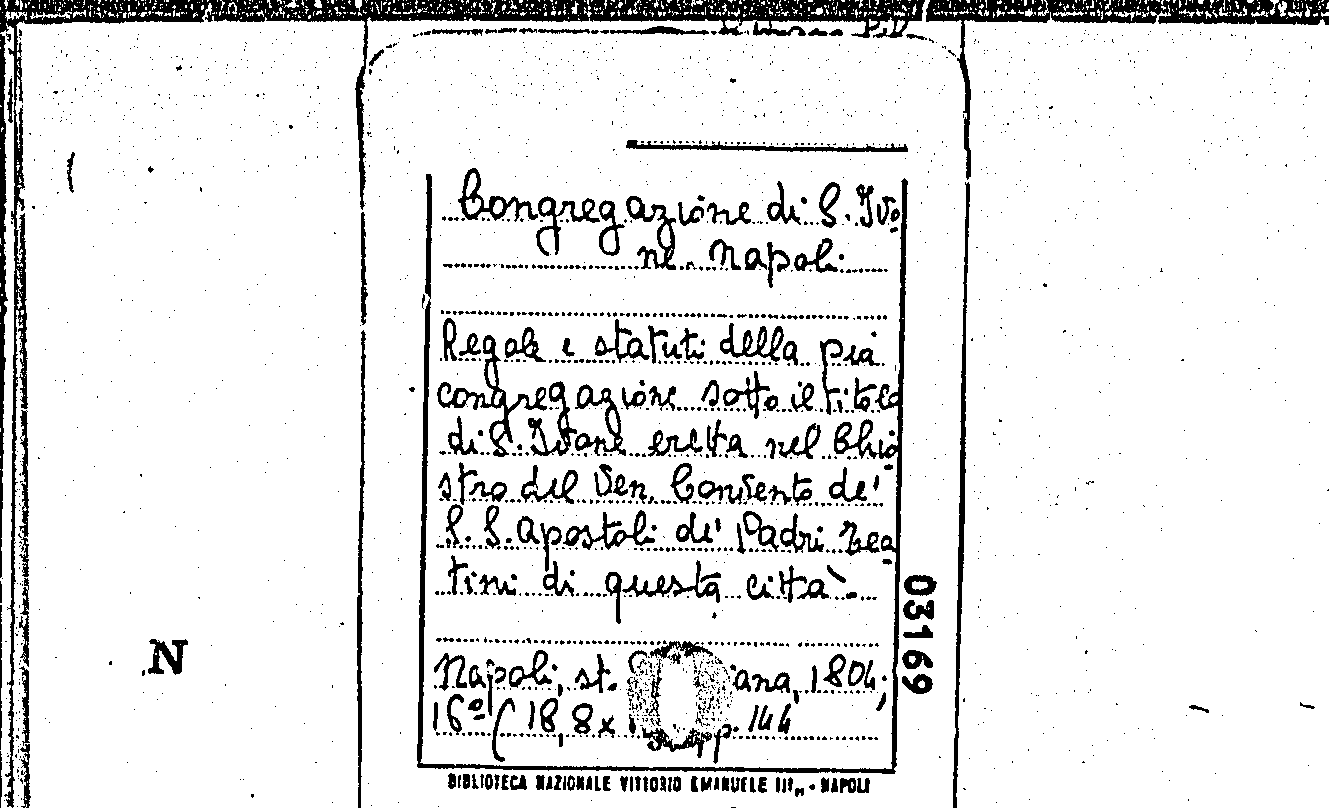 Congregazione di S. Ivo
ne. Napoli.
Regole e statuti della pia
congregazione sotto il titolo
di S. Ivone eretta nel Chio
stro del Ven. Convento de'
S. S. Apostoli de' Padri Tea
tini di questa città.
Napoli, st. ana, 1804;
16º (18,8x p. 144
BIBLIOTECA NAZIONALE VITTORIO EMANUELE III, - NAPOLI
03169
N